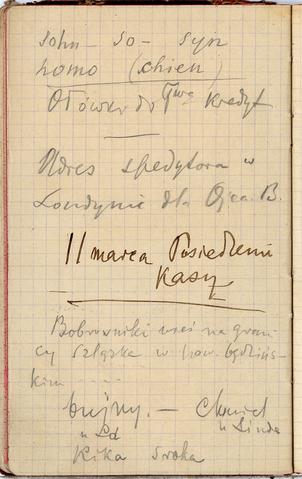 sohn – so – syn
homo (chien)
Ołówki do kredyt
Adres spedytora w
Londynie dla Ojca B.
11 marca Posiedzenie
Kasy
Bobrowniki wieś na grani-
cy Szląska w pow. będziń-
skim
bujny. –
Kika Sroka